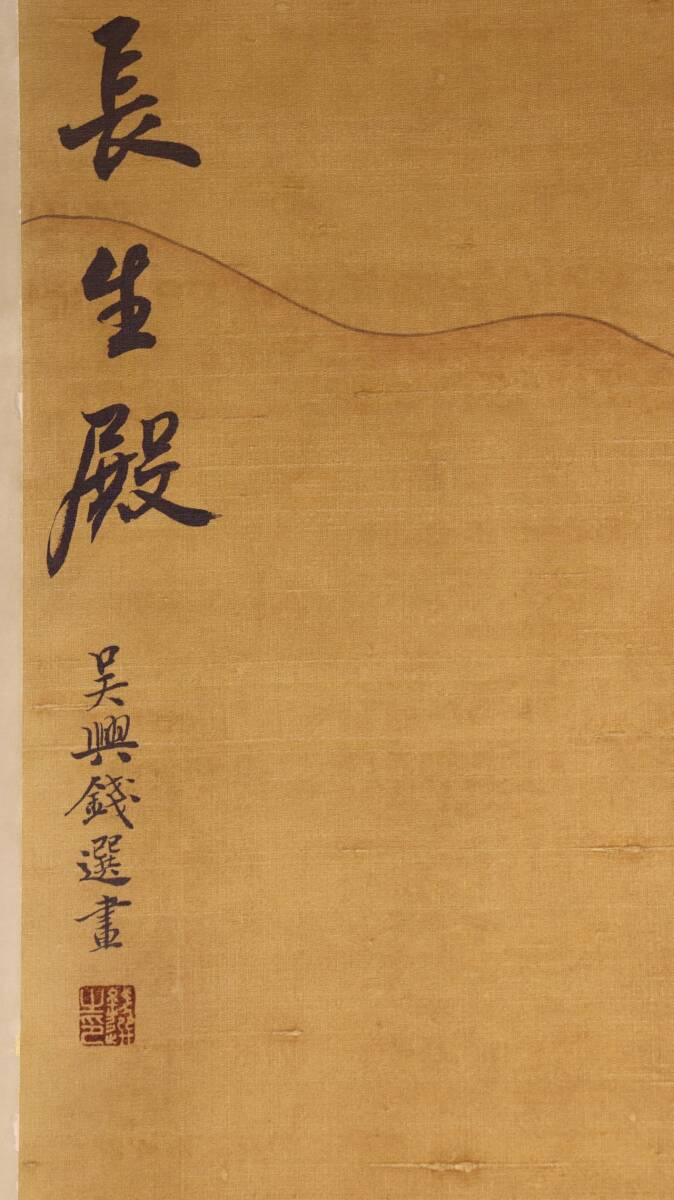 長生殿
吳興錢選畫
錢選之印